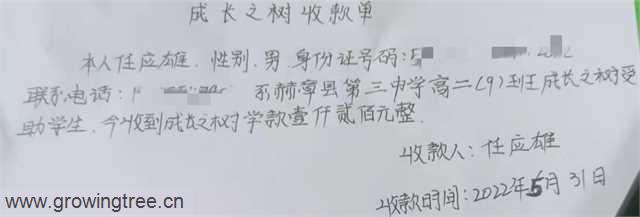 成长之树收款单
本人任应雄,性别:男,身份证号码:5
联系电话:1 系赫章县第三中学高二(9)班成长之树受
助学生,今收到成长之树学款壹仟贰佰元整.
收款人:任应雄
收款时间:2022年5月31日
www.growingtree.cn